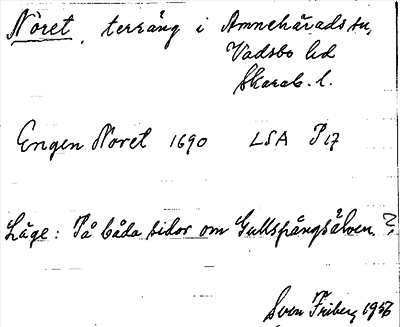 Nöret, terräng i Amnehärads sn,
Vadsbo hd
Skarab. l.
Engen Noret 1690 LSA P17
Läge: På båda sidor om Gullspångsälven.?
Sven Friberg 1956